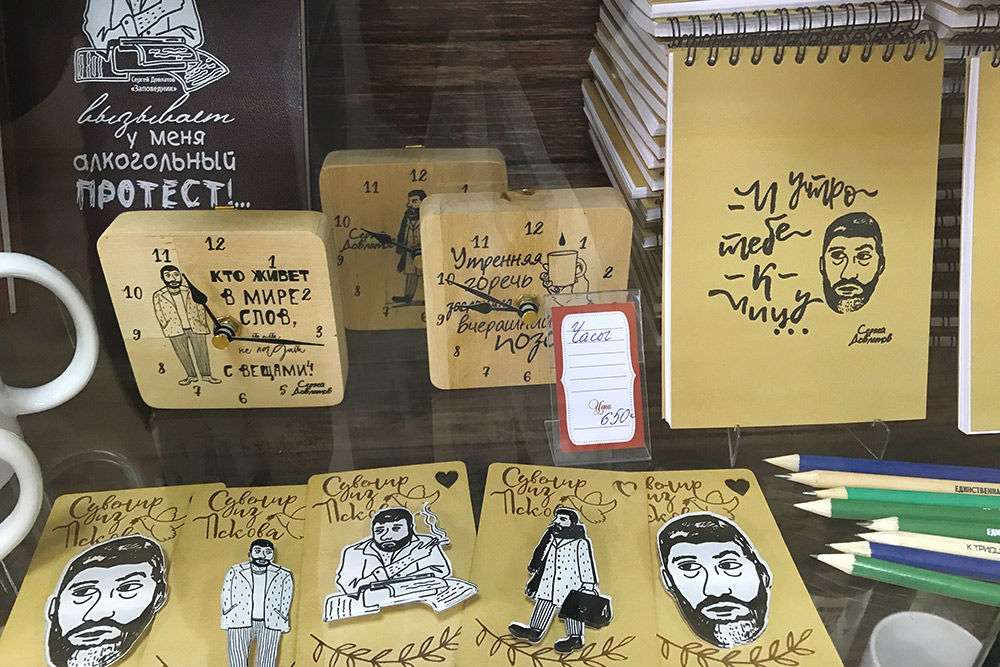 Сергей Довлатов
«Заповедник»
вызывает
у меня
алкогольный
ПРОТЕСТ!...
11
10
Сергей
Довлатов
12
11
1
10
2
9
3
8
4
7
6
5
КТО ЖИВЕТ
В МИРЕ
СЛОВ,
не ладит
С ВЕЩАМИ!
Сергей
Довлатов
11
12
1
10
2
9
8
7
6
Утренняя
горечь
вчерашний
Часы
Цена
650
-И утро
тебе
-К-
лицу...
Сергей
Довлатов
Сувенир
из
Пскова
Сувенир
из
Пскова
Сувенир
из
Пскова
Сувенир
из
Пскова
Сувенир
из
Пскова
ЕДИНСТВЕННА
ЕДИНСТВ
К ТРИДЦ